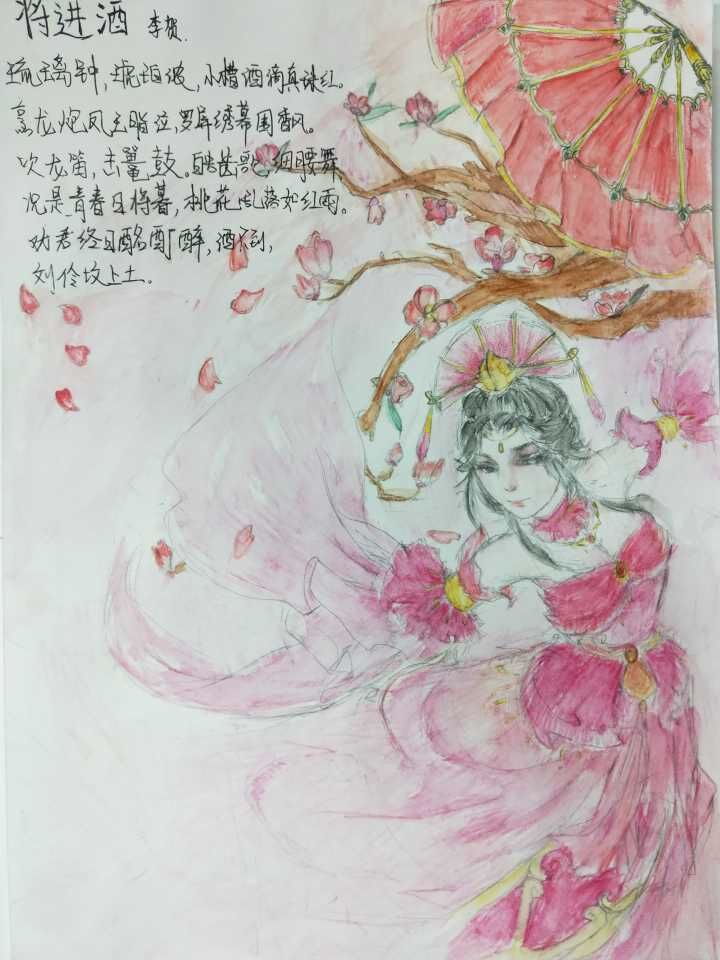 将进酒 李贺.
琉璃钟,琥珀浓,小槽酒滴真珠红。
烹龙炮凤玉脂泣,罗屏绣幕围香风。
吹龙笛,击鼍鼓。皓齿歌,细腰舞
况是青春日将暮,桃花乱落如红雨。
劝君终日酩酊醉,酒不到,
刘伶坟上土。